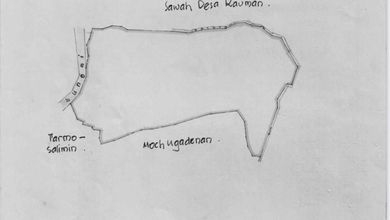 Sawah Desa Kauman.
Sungai
Tarmo-
salimin.
Moch Ugadenan.